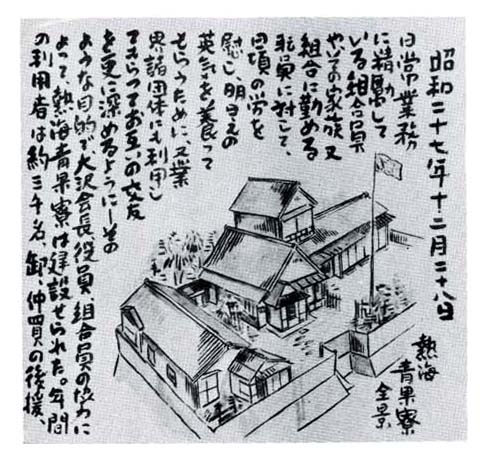 昭和二十七年十二月二十八日
日常業務
に精励して
いる組合員
やその家族又
組合に勤める
職員に対して、
日頃の労を
慰し、明日えの
英気を養って
もらうために、又業
界諸団体にも利用し
てもらってお互いの交友
を更に深めるようにーその
ような目的で大沢会長、役員、組合員の協力に
よって、熱海青果寮は建設せられた。年間
の利用者は約三千名、卸、仲買の後援、
熱海
青果寮
全景